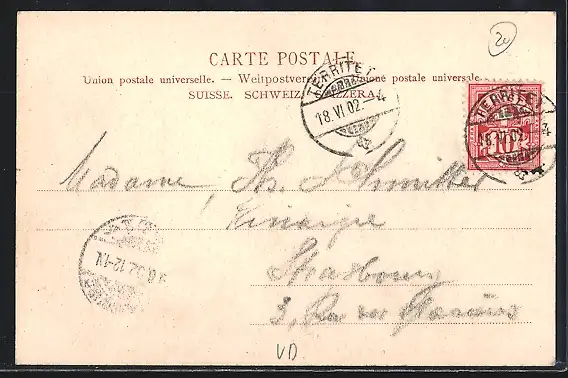 20
CARTE POSTALE.
Union postale universelle. — Weltpostverein. — Unione postale universale.
SUISSE. SCHWEIZ. SVIZZERA.
TERRITET
18.VI.02.-4
10
Madame, Th. Schmitter
Vinaigre
Strasbourg
3, Rue
VD